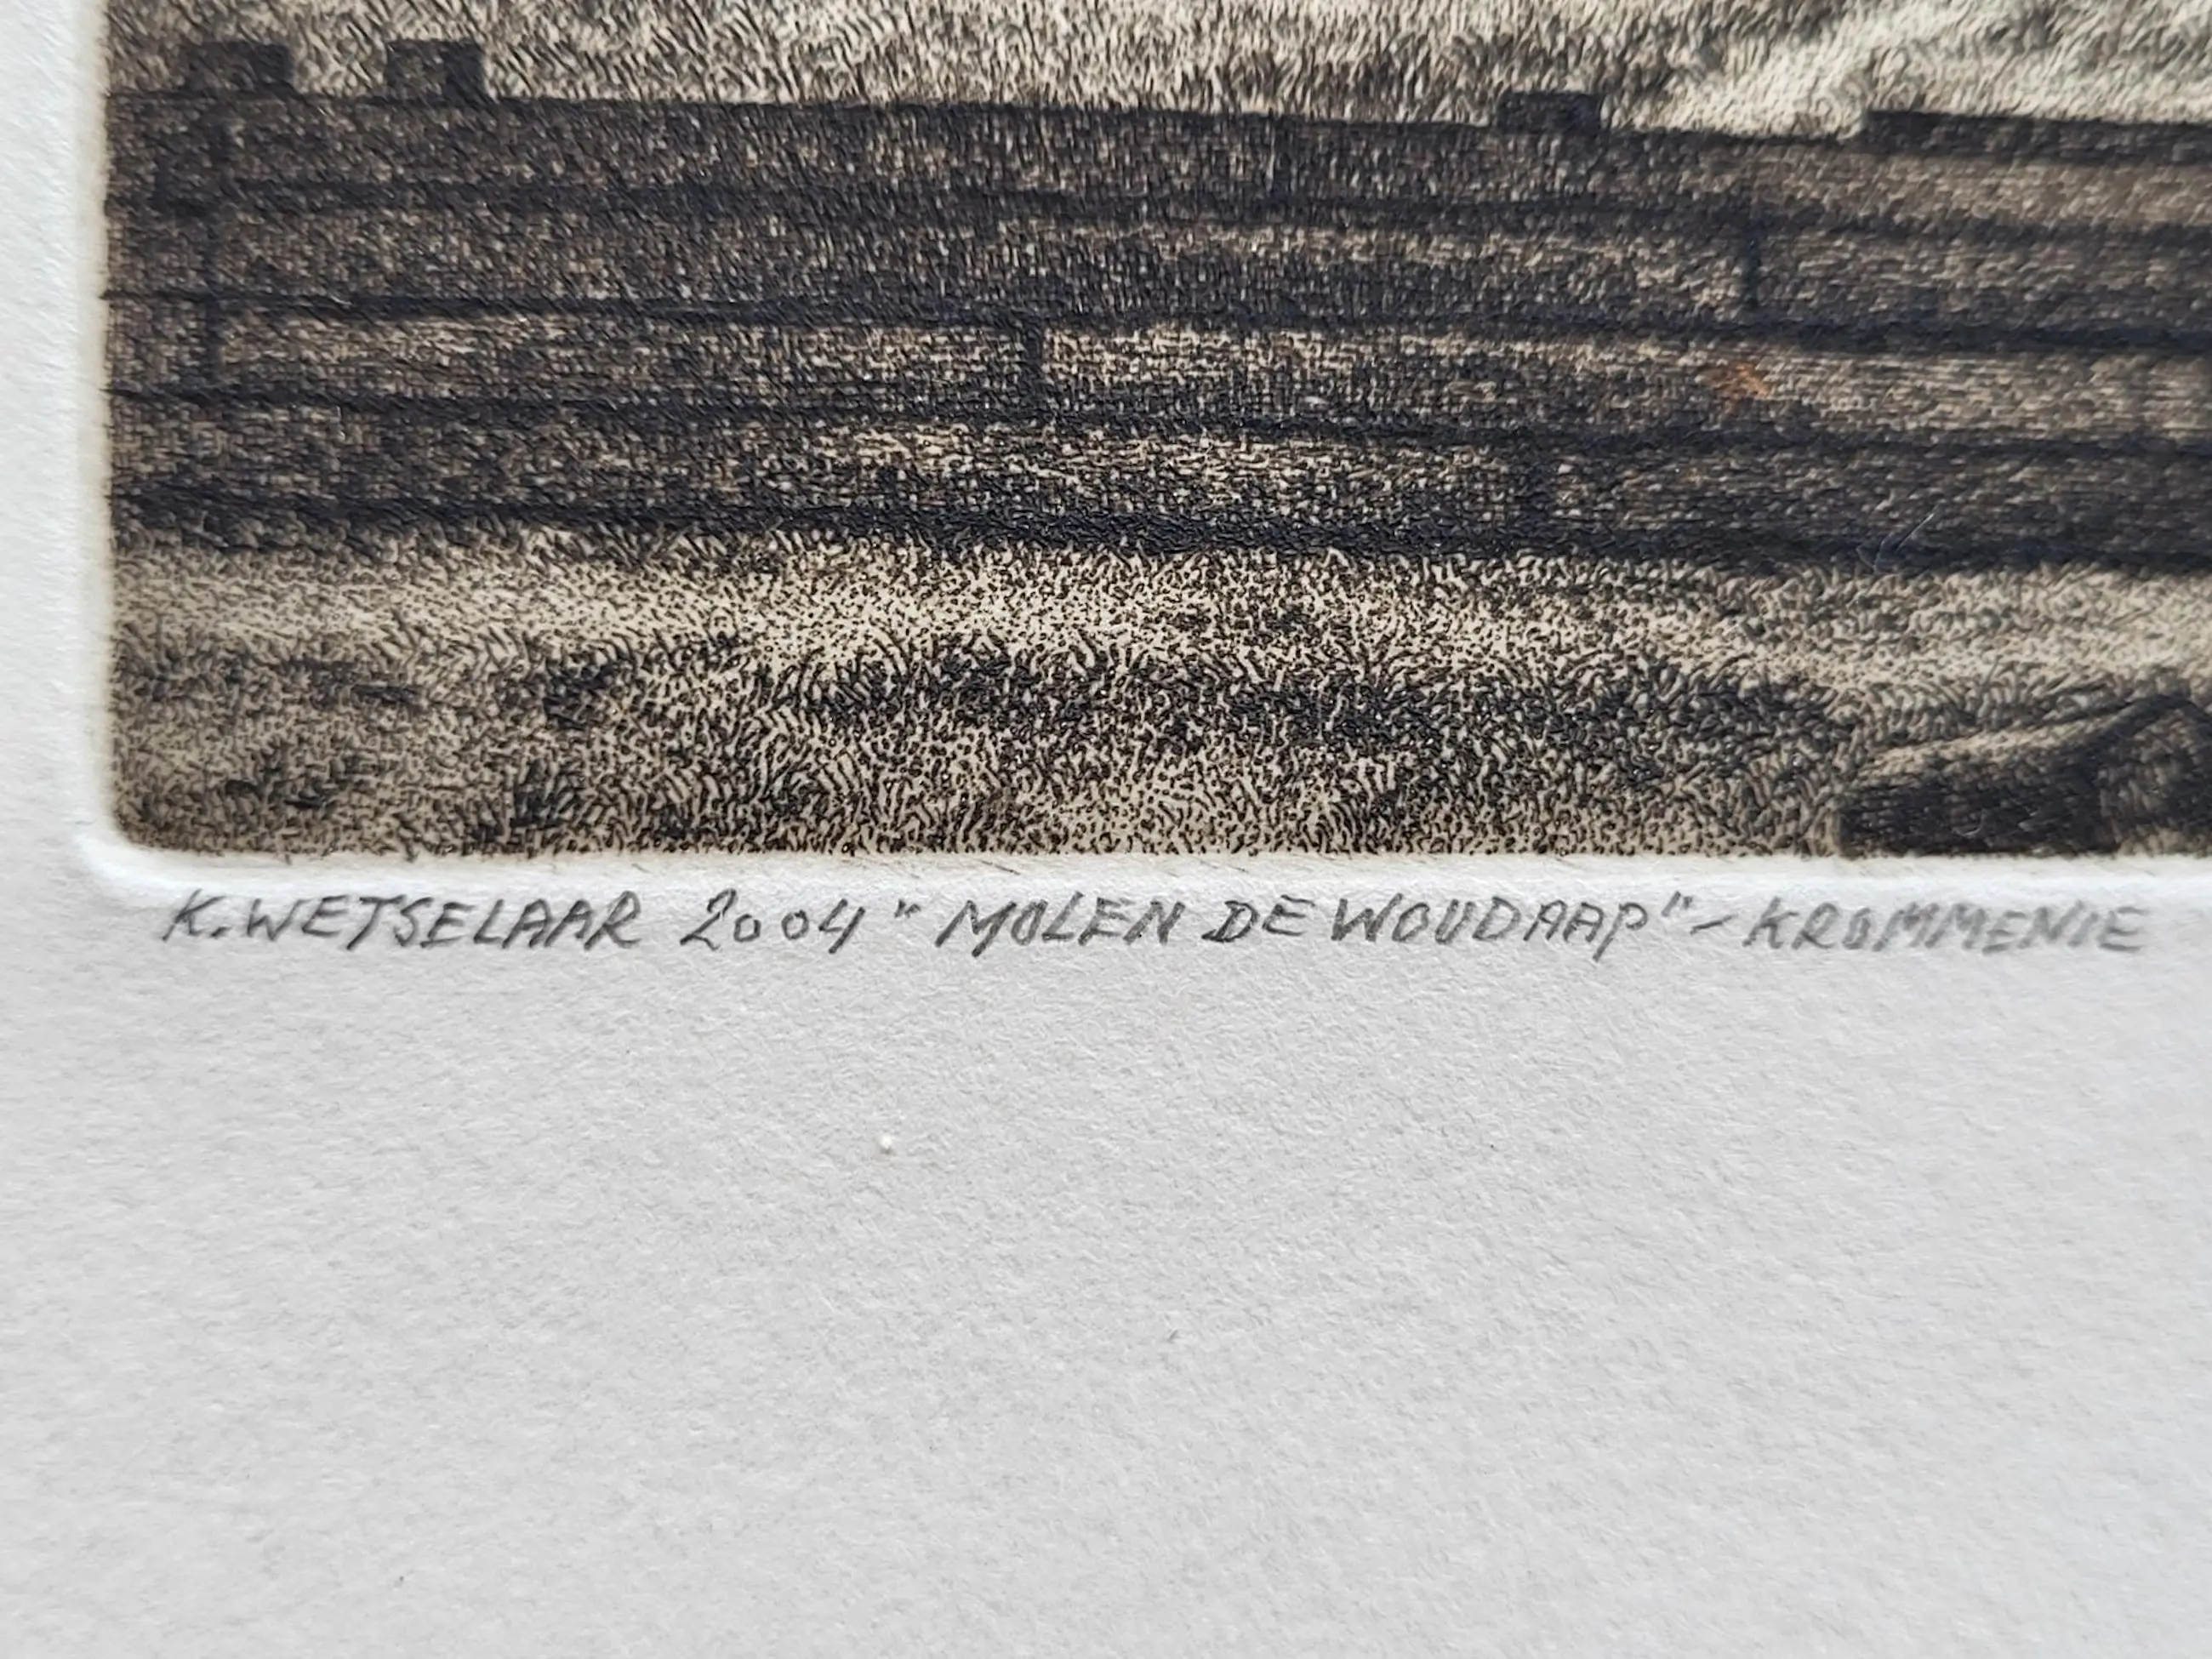 K. WETSELAAR 2004 " MOLEN DE WOUDAAP" - KROMMENIE